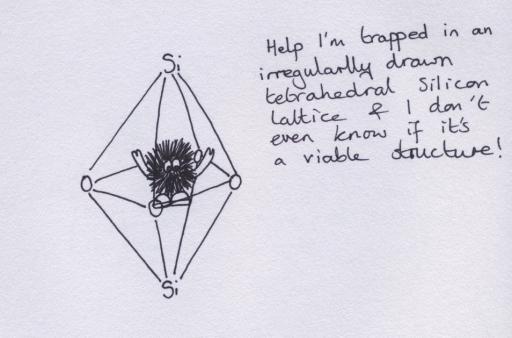 Si
Help I'm trapped in an
irregularlly drawn
tetrahedral Silicon
lattice & I don't
even know if it's
a viable structure!
O
O
O
O
Si